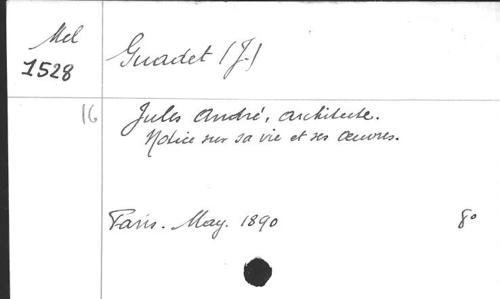 Mel
1528
Guadet (J.)
16
Jules André, architecte.
Notice sur sa vie et ses œuvres.
Paris. May. 1890
8°